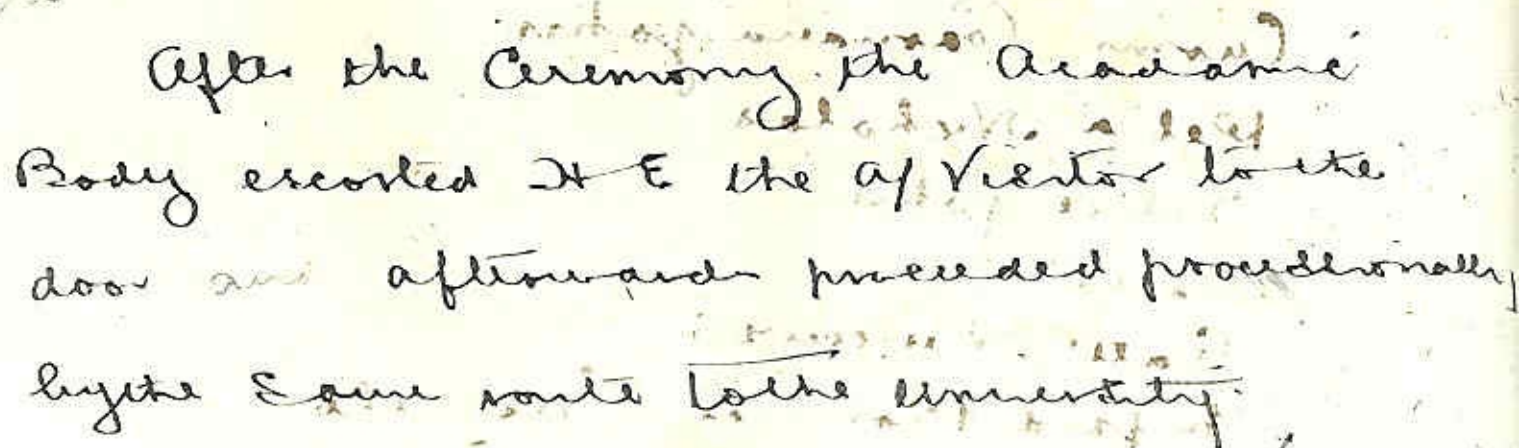 After the Ceremony the Academic
Body escorted H E the A/ Visitor to the
door and afterwards proceeded processionally
by the same route to the University.